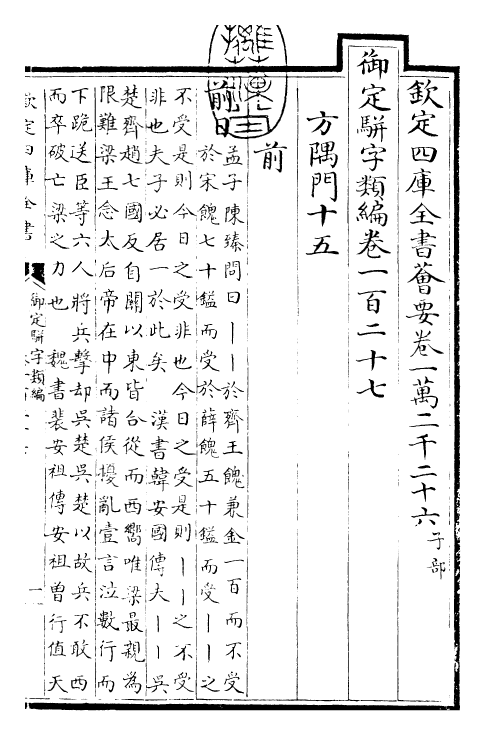 欽定四庫全書薈要卷一萬二千二十六 子部
御定騈字類編卷一百二十七
方隅門十五
前
前日
孟子陳臻問曰丨丨於齊王餽兼金一百而不受
於宋餽七十鎰而受於薛餽五十鎰而受丨丨之
不受是則今日之受非也今日之受是則丨丨之不受
非也夫子必居一於此矣 漢書韓安國傳夫丨丨吳
楚齊趙七國反自關以東皆合從而西嚮唯梁最親為
限難梁王念太后帝在中而諸侯擾亂壹言泣數行而
下跪送臣等六人將兵擊却吳楚吳楚以故兵不敢西
而卒破亡梁之力也 魏書裴安祖傳安祖曾行值天
欽定四庫全書
御定騈字類編
一